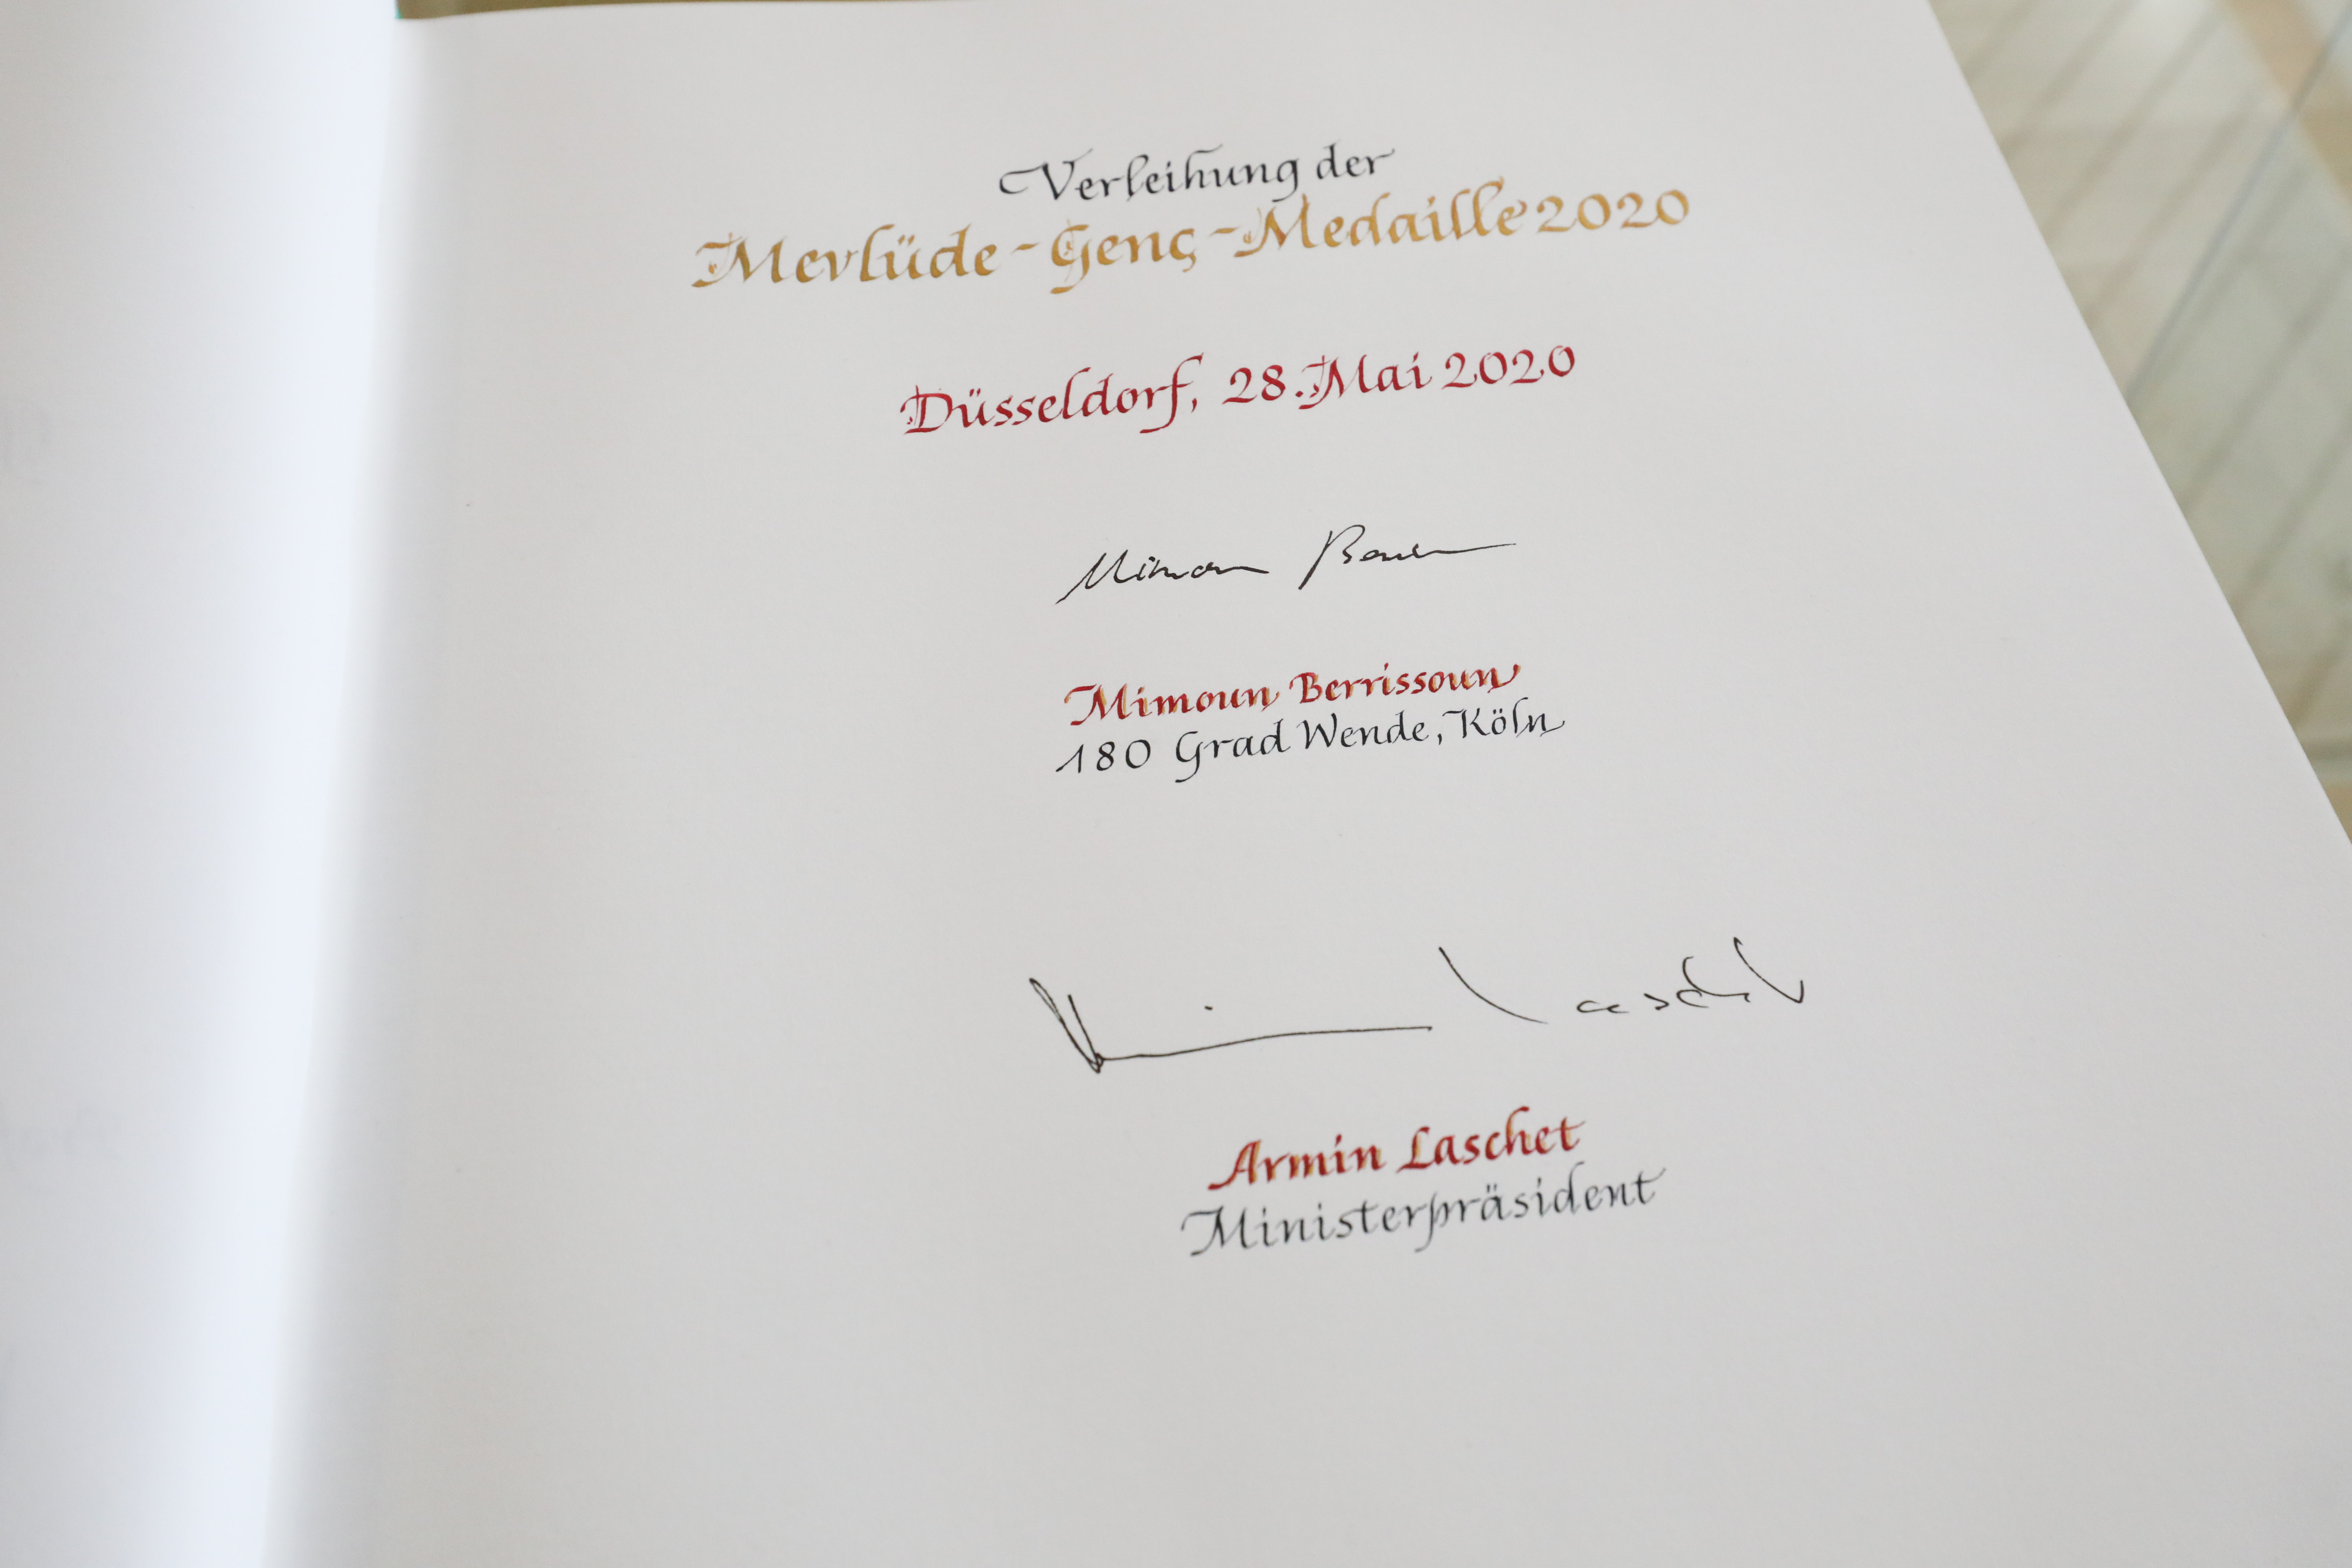 Verleihung der
Mevlüde-Genç-Medaille 2020
Düsseldorf, 28. Mai 2020
Mimoun Berrissoun
180 Grad Wende, Köln
Armin Laschet
Armin Laschet
Ministerpräsident